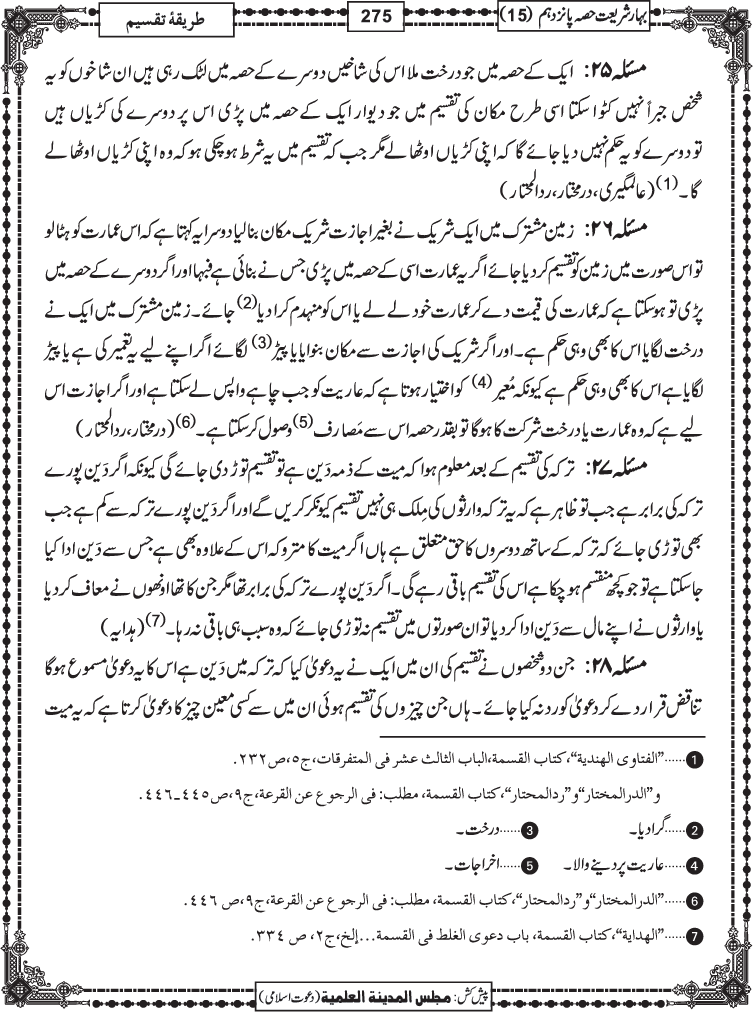 بہارِ شریعت حصہ پانزدہم (15)
275
طریقۂ تقسیم
مسئلہ ۲۵: ایک کے حصہ میں جو درخت ملا اس کی شاخیں دوسرے کے حصہ میں لٹک رہی ہیں ان شاخوں کو یہ
شخص جبراً نہیں کٹوا سکتا اسی طرح مکان کی تقسیم میں جو دیوار ایک کے حصہ میں پڑی اس پر دوسرے کی کڑیاں ہیں
تو دوسرے کو یہ حکم نہیں دیا جائے گا کہ اپنی کڑیاں اوٹھالے مگر جب کہ تقسیم میں یہ شرط ہوچکی ہو کہ وہ اپنی کڑیاں اوٹھا لے
گا۔(1) (عالمگیری، درمختار، ردالمحتار)
مسئلہ ۲۶: زمین مشترک میں ایک شریک نے بغیر اجازت شریک مکان بنالیا دوسرا یہ کہتا ہے کہ اس عمارت کو ہٹا لو
تو اس صورت میں زمین کو تقسیم کردیا جائے اگر یہ عمارت اسی کے حصہ میں پڑی جس نے بنائی ہے فبہا اور اگر دوسرے کے حصہ میں
پڑی تو ہوسکتا ہے کہ عمارت کی قیمت دے کر عمارت خود لے لے یا اس کو منہدم کرا دیا(2) جائے۔ زمین مشترک میں ایک نے
درخت لگایا اس کا بھی وہی حکم ہے۔ اور اگر شریک کی اجازت سے مکان بنوایا یا پیڑ(3) لگائے اگر اپنے لیے یہ تعمیر کی ہے یا پیڑ
لگایا ہے اس کا بھی وہی حکم ہے کیونکہ مُعیر(4) کو اختیار ہوتا ہے کہ عاریت کو جب چاہے واپس لے سکتا ہے اور اگر اجازت اس
لیے ہے کہ وہ عمارت یا درخت شرکت کا ہوگا تو بقدر حصہ اس سے مَصارف(5) وصول کرسکتا ہے۔(6) (درمختار، ردالمحتار)
مسئلہ ۲۷: ترکہ کی تقسیم کے بعد معلوم ہوا کہ میت کے ذمہ دَین ہے تو تقسیم توڑ دی جائے گی کیونکہ اگر دَین پورے
ترکہ کی برابر ہے جب تو ظاہر ہے کہ یہ ترکہ وارثوں کی مِلک ہی نہیں تقسیم کیونکر کریں گے اور اگر دَین پورے ترکہ سے کم ہے جب
بھی توڑی جائے کہ ترکہ کے ساتھ دوسروں کا حق متعلق ہے ہاں اگر میت کا متروکہ اس کے علاوہ بھی ہے جس سے دَین ادا کیا
جاسکتا ہے تو جو کچھ منقسم ہوچکا ہے اس کی تقسیم باقی رہے گی۔ اگر دَین پورے ترکہ کی برابر تھا مگر جن کا تھا اونھوں نے معاف کردیا
یا وارثوں نے اپنے مال سے دَین ادا کردیا تو ان صورتوں میں تقسیم نہ توڑی جائے کہ وہ سبب ہی باقی نہ رہا۔(7) (ہدایہ)
مسئلہ ۲۸: جن دو شخصوں نے تقسیم کی ان میں ایک نے یہ دعویٰ کیا کہ ترکہ میں دَین ہے اس کا یہ دعویٰ مسموع ہوگا
تناقض قرار دے کر دعویٰ کو رد نہ کیا جائے۔ ہاں جن چیزوں کی تقسیم ہوئی ان میں سے کسی معین چیز کا دعویٰ کرتا ہے کہ یہ میت
1......"الفتاوی الھندیۃ"، کتاب القسمۃ، الباب الثالث عشر فی المتفرقات، ج۵، ص۲۳۲.
و"الدرالمختار"و"ردالمحتار"، کتاب القسمۃ، مطلب: فی الرجوع عن القرعۃ، ج۹، ص۴۴۵۔۴۴۶.
2......گرادیا۔
3......درخت۔
4......عاریت پر دینے والا۔
5......اخراجات۔
6......"الدرالمختار"و"ردالمحتار"، کتاب القسمۃ، مطلب: فی الرجوع عن القرعۃ، ج۹، ص ۴۴۶.
7......"الھدایۃ"، کتاب القسمۃ، باب دعوی الغلط فی القسمۃ...إلخ، ج۲، ص ۳۳۴.
پیش کش: مجلس المدینۃ العلمیۃ (دعوت اسلامی)